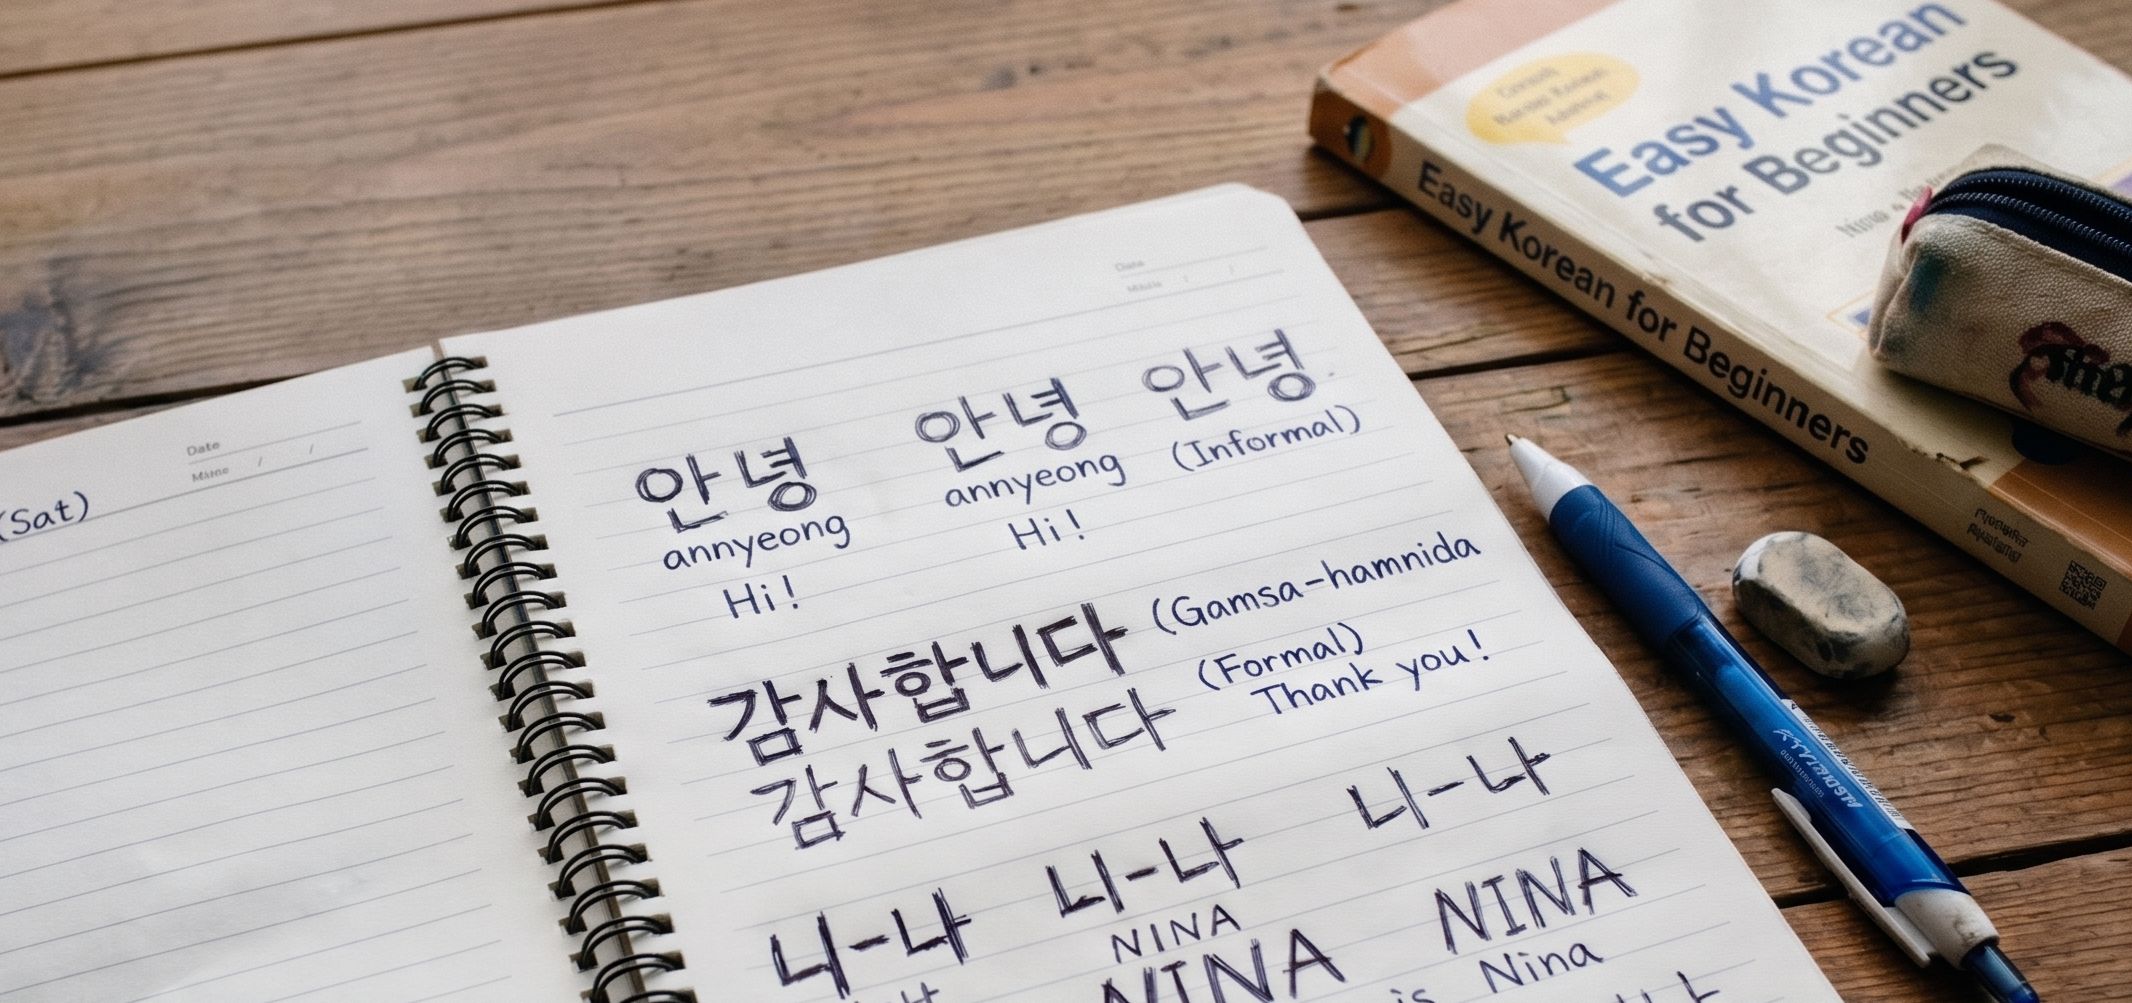 (Sat)
Date
Date
안녕 안녕 안녕.
annyeong annyeong (Informal)
Hi! Hi!
감사합니다 (Gamsa-hamnida
(Formal)
감사합니다 Thank you!
니-나 니-나 니-나
NINA NINA NINA
is Nina
Easy Korean
for Beginners
Easy Korean for Beginners